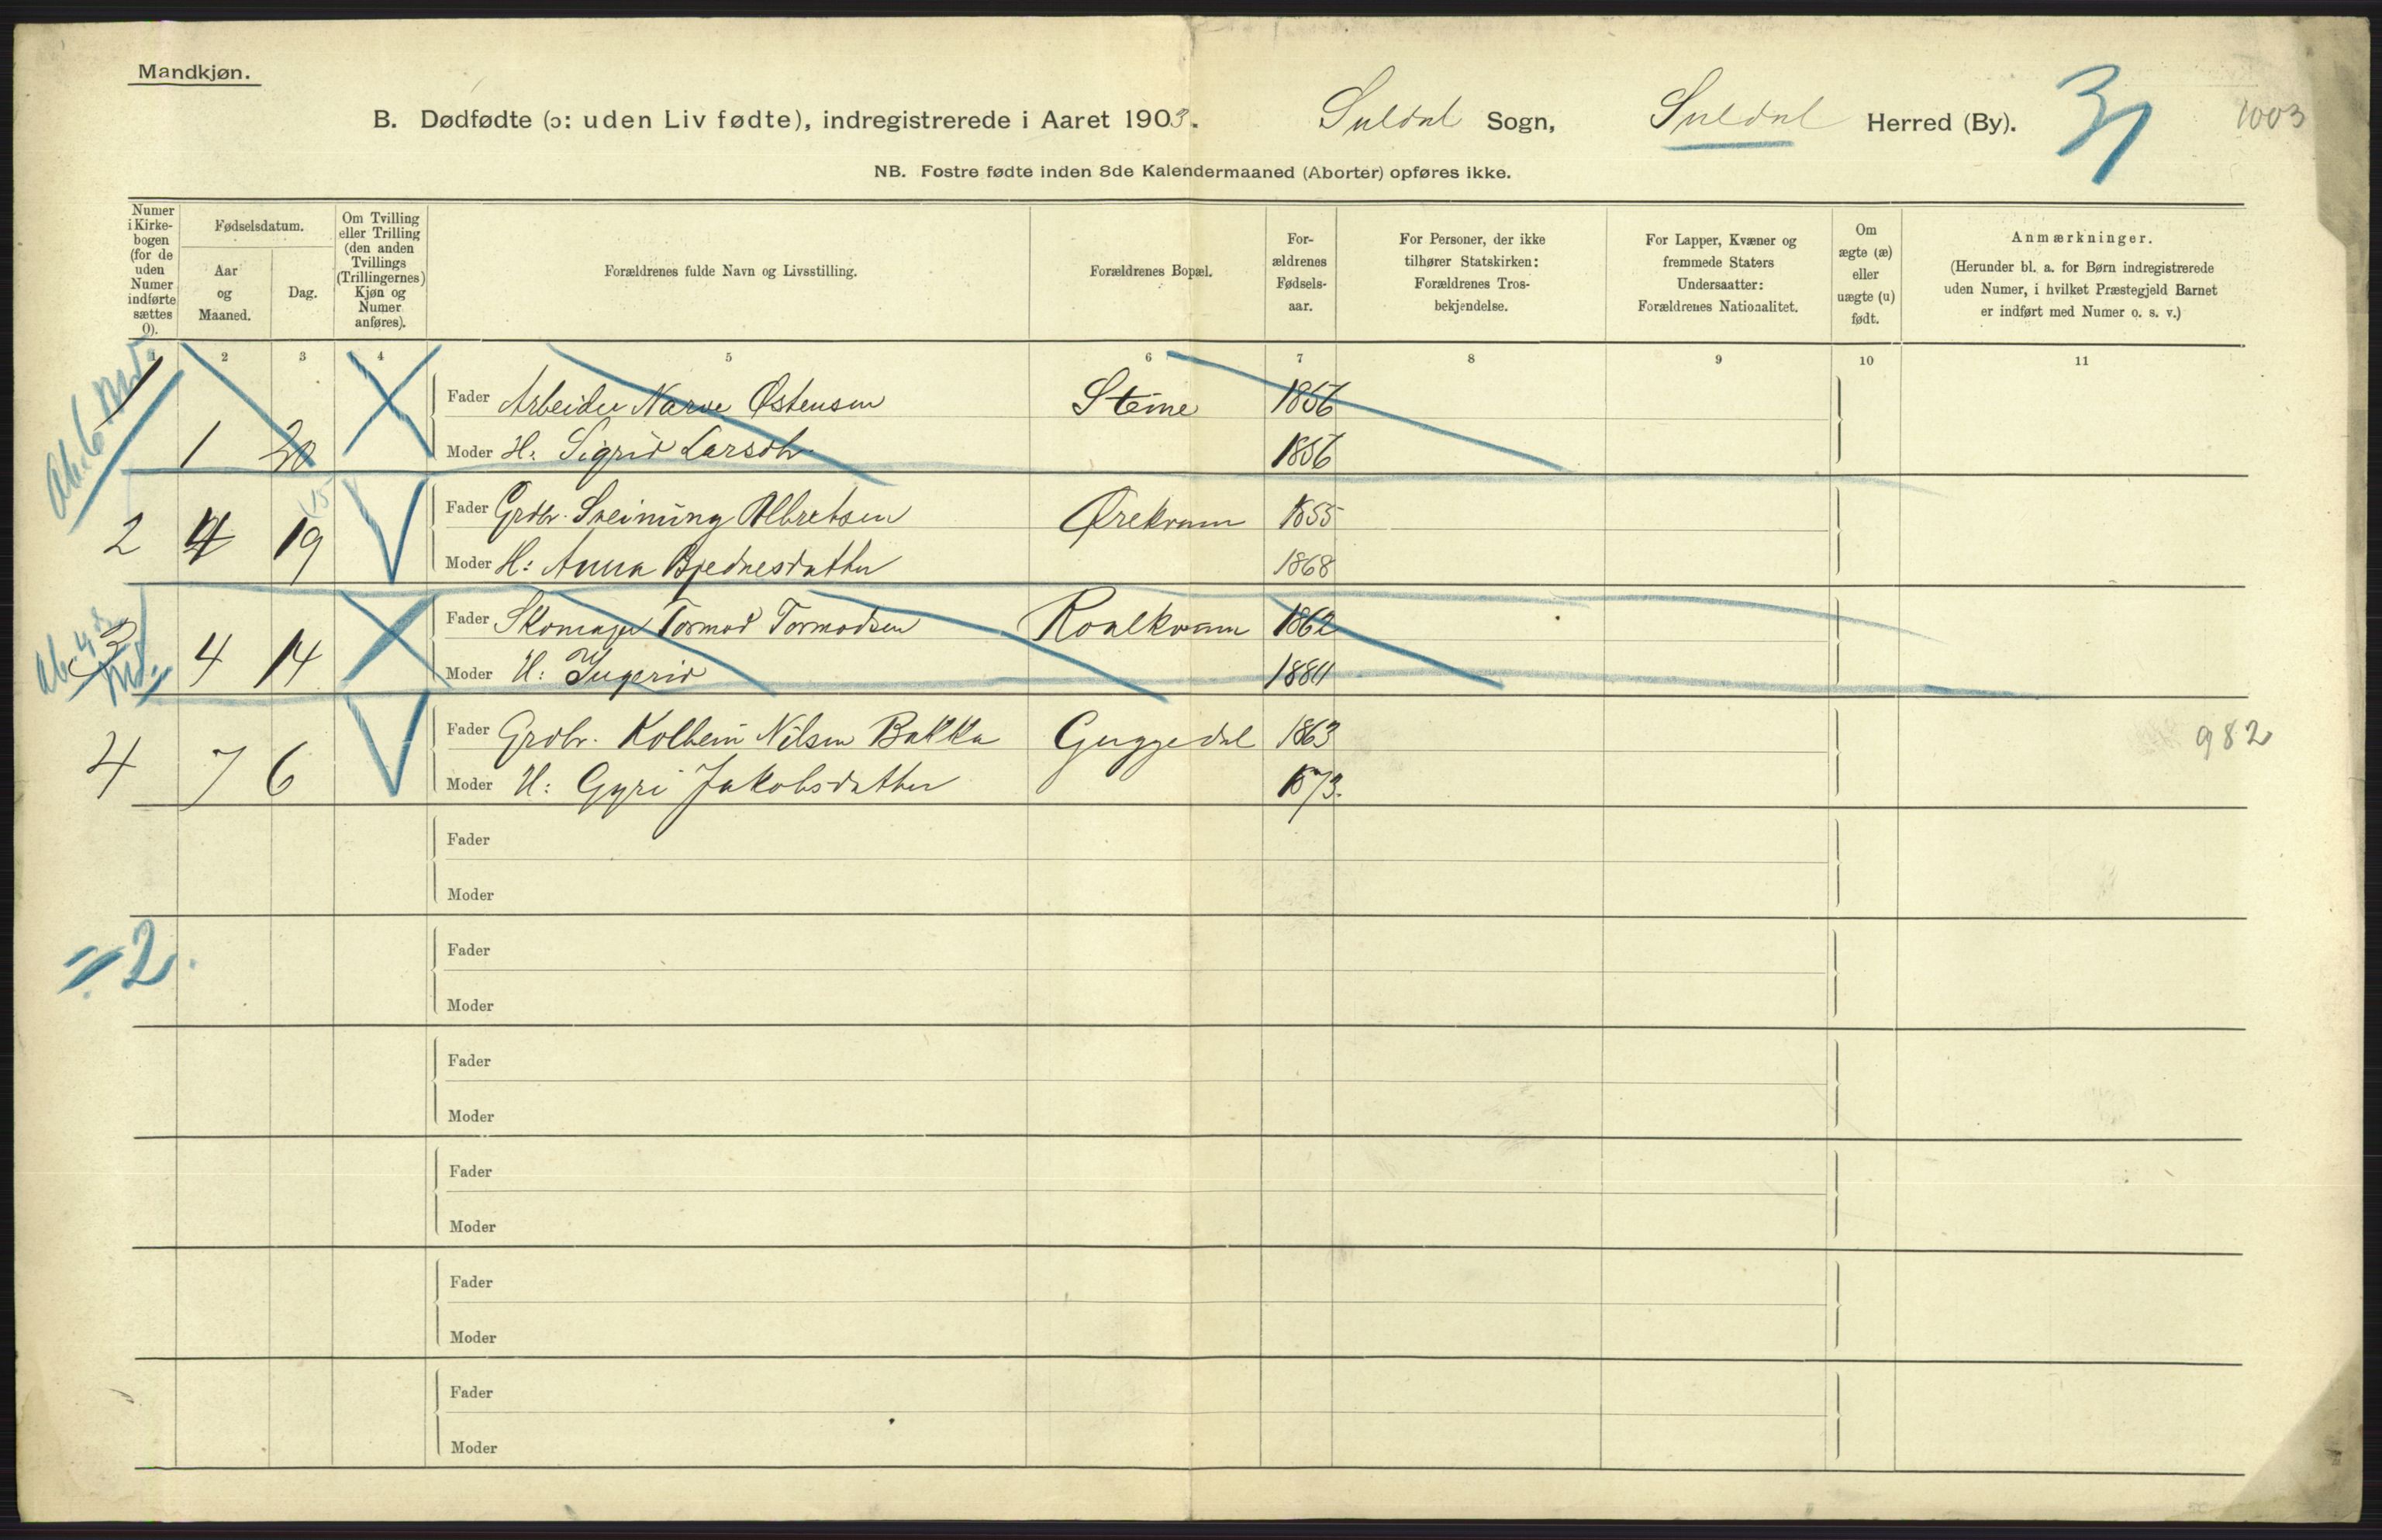 Mandkjøn.
B. Dødfødte (ɔ: uden Liv fødte), indregistrerede i Aaret 1903. Suldal Sogn, Suldal Herred (By).
31
1003
NB. Fostre fødte inden 8de Kalendermaaned (Aborter) opføres ikke.
Numer i Kirke-bogen (for de uden Numer indførte sættes 0).
Fødselsdatum.
Aar og Maaned.
Dag.
Om Tvilling eller Trilling (den anden Tvillings (Trillingernes) Kjøn og Numer anføres).
Forældrenes fulde Navn og Livsstilling.
Forældrenes Bopæl.
For-ældrenes Fødsels-aar.
For Personer, der ikke tilhører Statskirken: Forældrenes Tros-bekjendelse.
For Lapper, Kvæner og fremmede Staters Undersaatter: Forældrenes Nationalitet.
Om ægte (æ) eller uægte (u) født.
Anmærkninger.
(Herunder bl. a. for Børn indregistrerede uden Numer, i hvilket Præstegjeld Barnet er indført med Numer o. s. v.)
1 2 3 4 5 6 7 8 9 10 11
Ab. 6 Md.
1 1 20
Fader Arbeider Narve Østensen Steine 1856
Moder H: Sigrid Larsdtr. 1856
2 4 19 (15
Fader Grdbr. Sveinung Albretsen Ørekvam 1855
Moder H: Anna Bjednesdatter 1868
Ab. 4 Md.
3 4 14
Fader Skomager Tormod Tormodsen Roalkvam 1862
Moder H: Ingerid 1884
4 7 6
Fader Grdbr. Kolbein Nilsen Bakka Guggedal 1863
Moder H: Gyri Jakobsdatter 1873.
982
Fader
Moder
= 2.
Fader
Moder
Fader
Moder
Fader
Moder
Fader
Moder
Fader
Moder